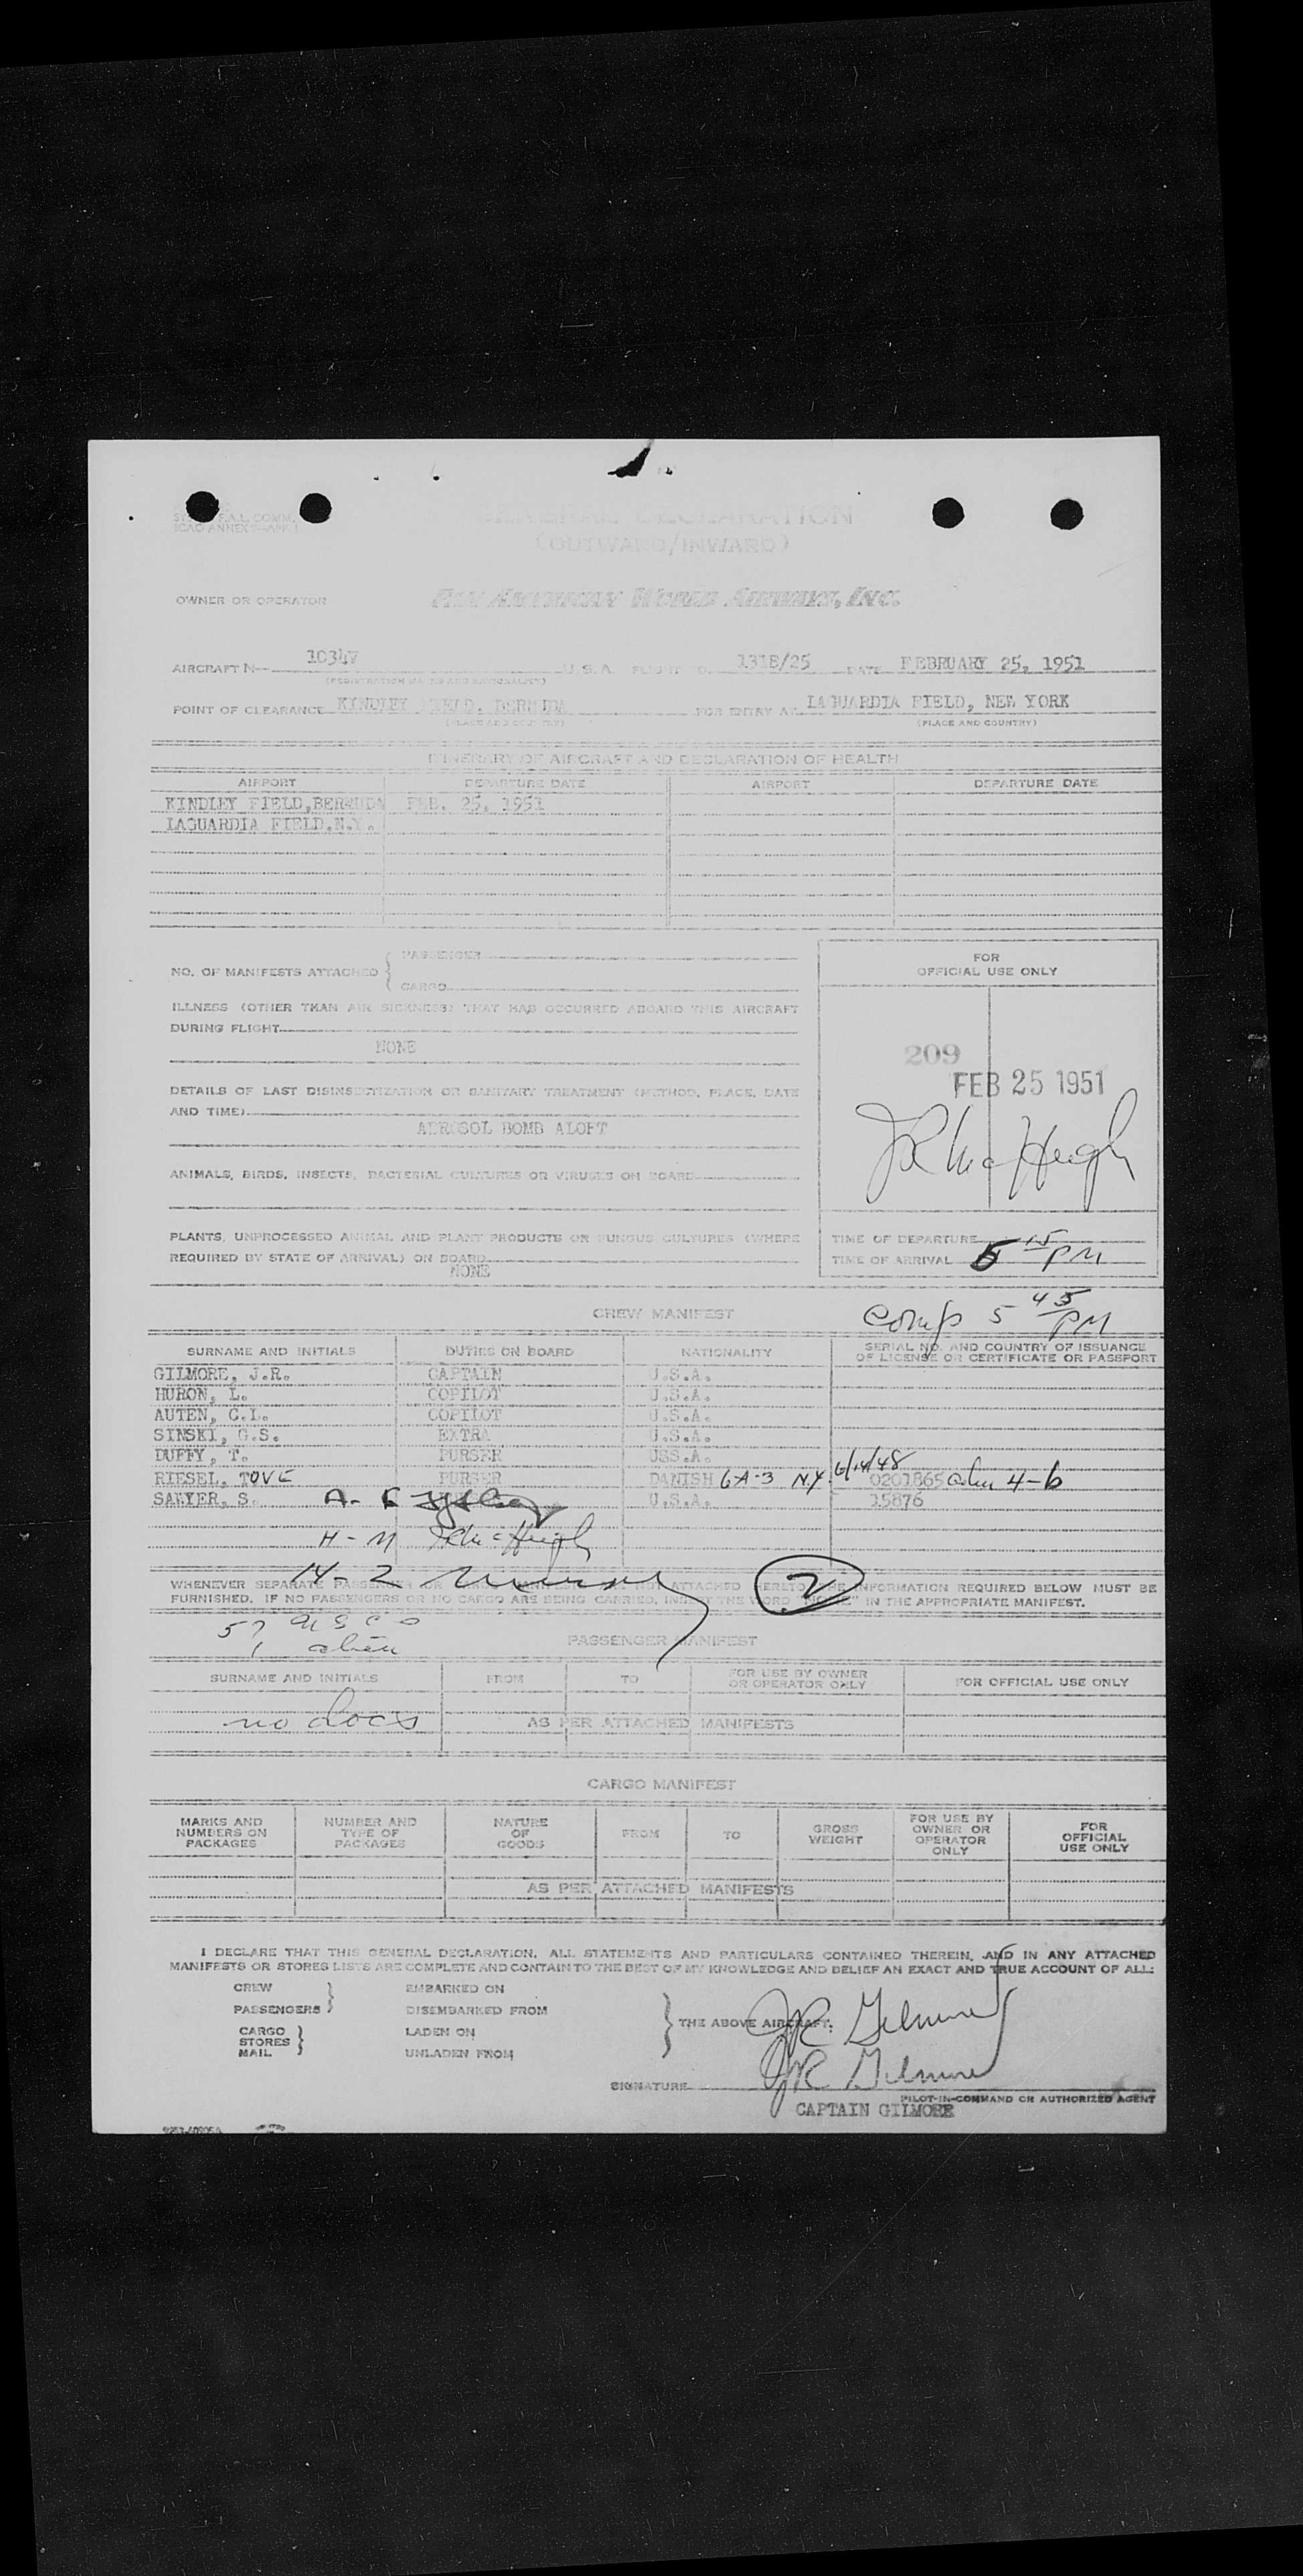 GENERAL DECLARATION
(OUTWARD/INWARD)
OWNER OR OPERATOR PAN AMERICAN WORLD AIRWAYS, INC.
AIRCRAFT N- 1034V U.S.A. FLIGHT NO. 131B/25 DATE FEBRUARY 25, 1951
(REGISTRATION MARKS AND NATIONALITY)
POINT OF CLEARANCE KINDLEY FIELD, BERMUDA FOR ENTRY AT LAGUARDIA FIELD, NEW YORK
(PLACE AND COUNTRY) (PLACE AND COUNTRY)
ITINERARY OF AIRCRAFT AND DECLARATION OF HEALTH
AIRPORT DEPARTURE DATE AIRPORT DEPARTURE DATE
KINDLEY FIELD, BERMUDA FEB. 25, 1951
LAGUARDIA FIELD, N.Y.
NO. OF MANIFESTS ATTACHED { PASSENGER
CARGO
ILLNESS (OTHER THAN AIR SICKNESS) THAT HAS OCCURRED ABOARD THIS AIRCRAFT
DURING FLIGHT
NONE
DETAILS OF LAST DISINSECTIZATION OR SANITARY TREATMENT (METHOD, PLACE, DATE
AND TIME)
AEROSOL BOMB ALOFT
ANIMALS, BIRDS, INSECTS, BACTERIAL CULTURES OR VIRUSES ON BOARD
PLANTS, UNPROCESSED ANIMAL AND PLANT PRODUCTS OR FUNGUS CULTURES (WHERE
REQUIRED BY STATE OF ARRIVAL) ON BOARD
NONE
FOR
OFFICIAL USE ONLY
209
FEB 25 1951
JR McHugh
TIME OF DEPARTURE
TIME OF ARRIVAL 5 15 PM
Comp 5 45 PM
CREW MANIFEST
SURNAME AND INITIALS DUTIES ON BOARD NATIONALITY SERIAL NO. AND COUNTRY OF ISSUANCE
OF LICENSE OR CERTIFICATE OR PASSPORT
GILMORE, J.R. CAPTAIN U.S.A.
HURON, L. COPILOT U.S.A.
AUTEN, C.L. COPILOT U.S.A.
SINSKI, G.S. EXTRA U.S.A.
DUFFY, T. PURSER USS.A.
RIESEL, TOVE PURSER DANISH 6A-3 N.Y. 6/14/48 0201865 4-6
SAWYER, S. U.S.A. 15876
A-
H-M McHugh
14-2
2
WHENEVER SEPARATE PASSENGER OR CARGO MANIFESTS ARE NOT ATTACHED HERETO THE INFORMATION REQUIRED BELOW MUST BE
FURNISHED. IF NO PASSENGERS OR NO CARGO ARE BEING CARRIED, INSERT THE WORD "NONE" IN THE APPROPRIATE MANIFEST.
57 usco
1 alien
PASSENGER MANIFEST
SURNAME AND INITIALS FROM TO FOR USE BY OWNER
OR OPERATOR ONLY FOR OFFICIAL USE ONLY
no docs
AS PER ATTACHED MANIFESTS
CARGO MANIFEST
MARKS AND
NUMBERS ON
PACKAGES NUMBER AND
TYPE OF
PACKAGES NATURE
OF
GOODS FROM TO GROSS
WEIGHT FOR USE BY
OWNER OR
OPERATOR
ONLY FOR
OFFICIAL
USE ONLY
AS PER ATTACHED MANIFESTS
I DECLARE THAT THIS GENERAL DECLARATION, ALL STATEMENTS AND PARTICULARS CONTAINED THEREIN, AND IN ANY ATTACHED
MANIFESTS OR STORES LISTS ARE COMPLETE AND CONTAIN TO THE BEST OF MY KNOWLEDGE AND BELIEF AN EXACT AND TRUE ACCOUNT OF ALL:
CREW
PASSENGERS } EMBARKED ON
DISEMBARKED FROM
CARGO
STORES
MAIL } LADEN ON
UNLADEN FROM
} THE ABOVE AIRCRAFT:
JR Gilmore
SIGNATURE JR Gilmore
PILOT-IN-COMMAND OR AUTHORIZED AGENT
CAPTAIN GILMORE